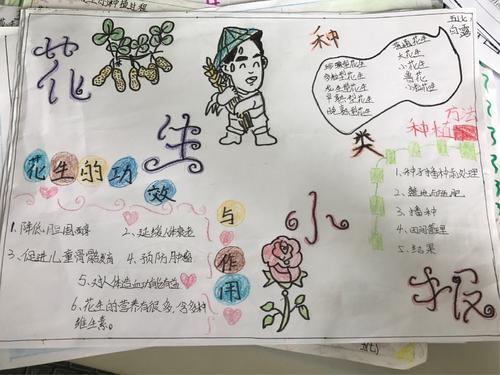 花生小报
种类
珍珠型花生
多粒型花生
龙生型花生
早熟型花生
晚熟型花生
大花生
小花生
鲁花
小粒花生
种植方法
1、种子播种前处理
2、整地与施肥
3、播种
4、田间管理
5、结果
花生的功效与作用
1、降低胆固醇
2、延缓人体衰老
3、促进儿童骨骼发育
4、预防肿瘤
5、对人体造血功能有益
6、花生的营养有很多，含多种
维生素。